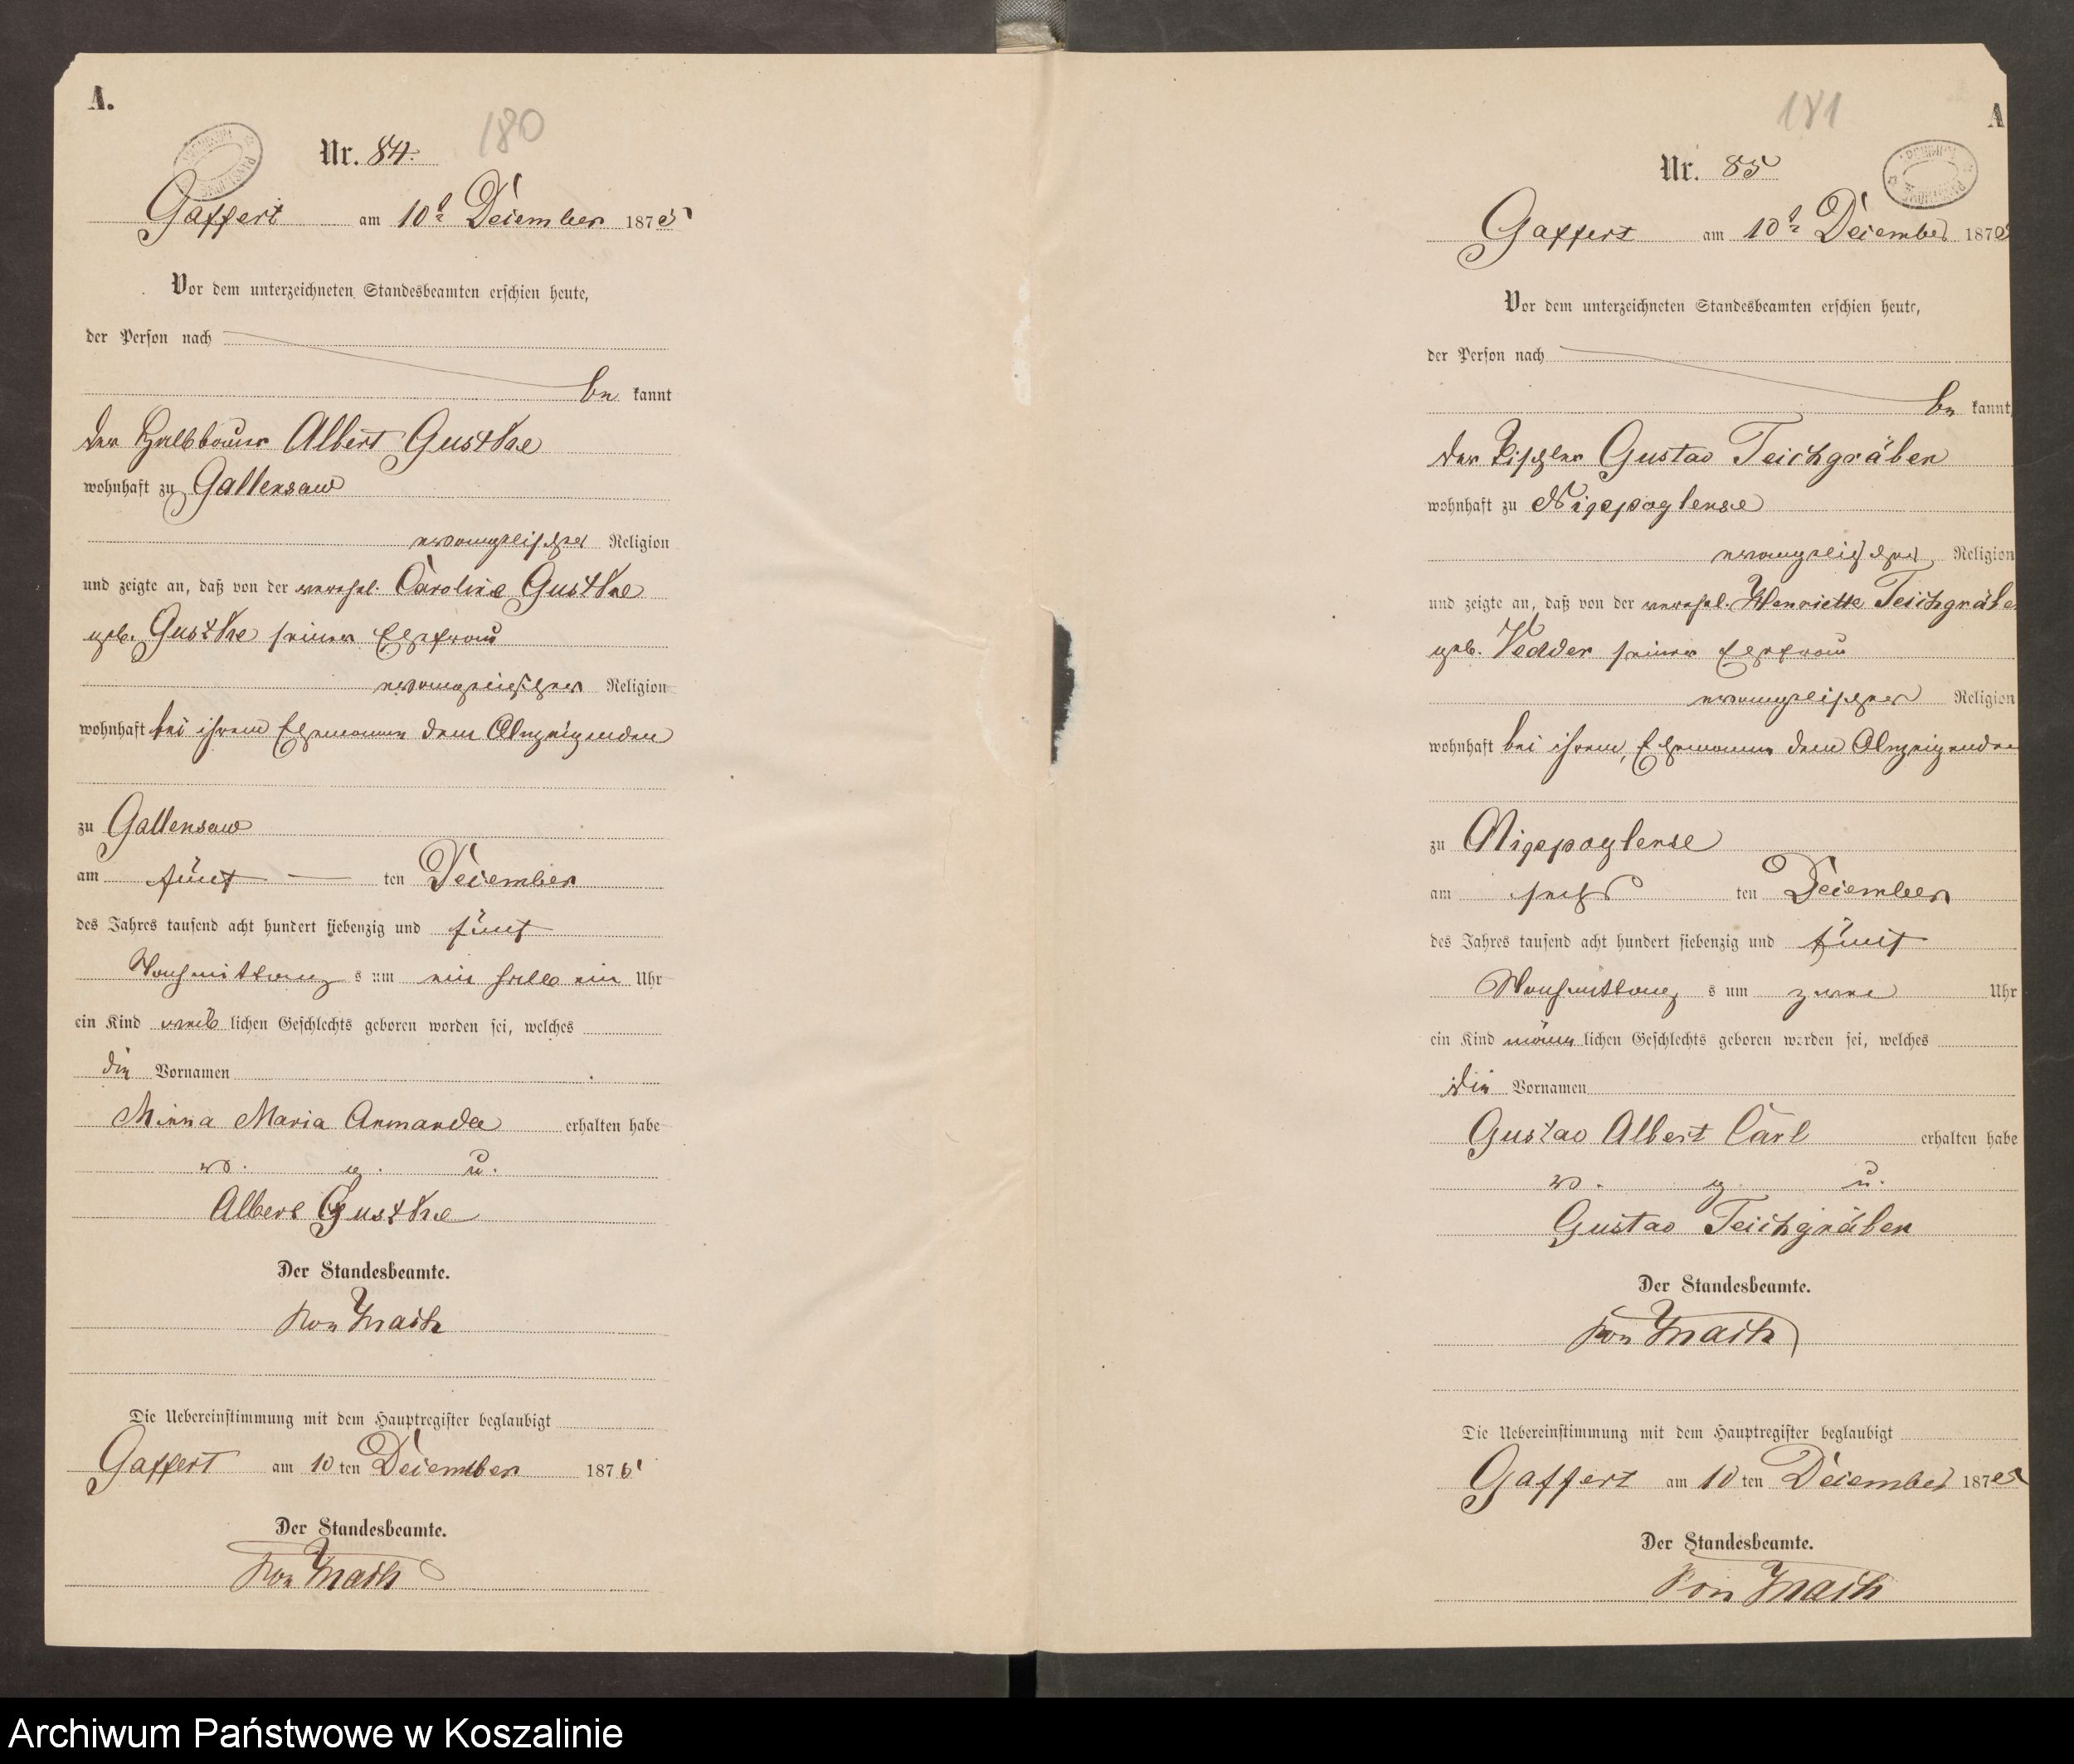 A.
180
Nr. 84.
Gaffert am 10t December 1875
Vor dem unterzeichneten Standesbeamten erschien heute,
der Person nach
be kannt
der Halbbauer Albert Gusthe
wohnhaft zu Gallensow
evangelischer Religion
und zeigte an, daß von der verehel. Caroline Gusthe
geb. Gusthe seiner Ehefrau
evangelischer Religion
wohnhaft bei ihrem Ehemann dem Anzeigenden
zu Gallensow
am fünf ten December
des Jahres tausend acht hundert siebenzig und fünf
Nachmittag s um ein halb ein Uhr
ein Kind weib lichen Geschlechts geboren worden sei, welches
die Vornamen
Minna Maria Amanda erhalten habe
v. g. u.
Albert Gusthe
Der Standesbeamte.
von Mach
Die Uebereinstimmung mit dem Hauptregister beglaubigt
Gaffert am 10 ten December 1875
Der Standesbeamte.
von Mach
A
181
Nr. 85
Gaffert am 10t December 1875
Vor dem unterzeichneten Standesbeamten erschien heute,
der Person nach
be kannt
der Tischler Gustav Teichgräber
wohnhaft zu Nippoglense
evangelischer Religion
und zeigte an, daß von der verehel. Henriette Teichgräber
geb. Vedder seiner Ehefrau
evangelischer Religion
wohnhaft bei ihrem Ehemann dem Anzeigenden
zu Nippoglense
am sechs ten December
des Jahres tausend acht hundert siebenzig und fünf
Nachmittag s um zwei Uhr
ein Kind männ lichen Geschlechts geboren worden sei, welches
die Vornamen
Gustav Albert Carl erhalten habe
v. g. u.
Gustav Teichgräber
Der Standesbeamte.
von Mach
Die Uebereinstimmung mit dem Hauptregister beglaubigt
Gaffert am 10 ten December 1875
Der Standesbeamte.
von Mach
Archiwum Państwowe w Koszalinie